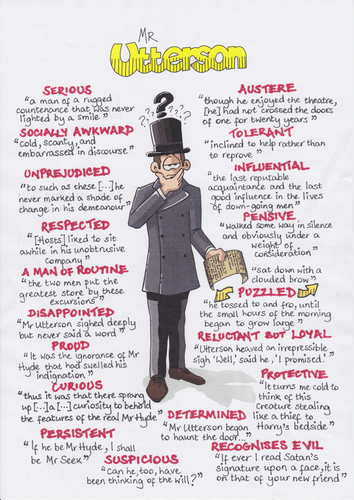 Mr
Utterson
SERIOUS
"a man of a rugged
countenance that was never
lighted by a smile"
SOCIALLY AWKWARD
"cold, scanty, and
embarrassed in discourse"
UNPREJUDICED
"to such as these [...] he
never marked a shade of
change in his demeanour"
RESPECTED
"[Hosts] liked to sit
awhile in his unobtrusive
company"
A MAN OF ROUTINE
"the two men put the
greatest store by these
excursions"
DISAPPOINTED
"Mr Utterson sighed deeply
but never said a word"
PROUD
"It was the ignorance of Mr
Hyde that had swelled his
indignation"
CURIOUS
"thus it was that there sprang
up [...] a [...] curiosity to behold
the features of the real Mr Hyde"
PERSISTENT
"If he be Mr Hyde, I shall
be Mr Seek"
SUSPICIOUS
"can he, too, have
been thinking of the will?"
? ? ? ? ? ? ?
AUSTERE
"though he enjoyed the theatre,
[he] had not crossed the doors
of one for twenty years"
TOLERANT
"inclined to help rather than
to reprove"
INFLUENTIAL
"the last reputable
acquaintance and the last
good influence in the lives
of down-going men"
PENSIVE
"walked some way in silence
and obviously under a
weight of
consideration"
"sat down with a
clouded brow"
PUZZLED
"he tossed to and fro, until the
small hours of the morning
began to grow large"
RELUCTANT BUT LOYAL
"Utterson heaved an irrepressible
sigh 'Well,' said he, 'I promised.'"
PROTECTIVE
"It turns me cold to
think of this
creature stealing
like a thief to
Harry's bedside"
DETERMINED
"Mr Utterson began
to haunt the door..."
RECOGNISES EVIL
"If ever I read Satan's
signature upon a face, it is
on that of your new friend"